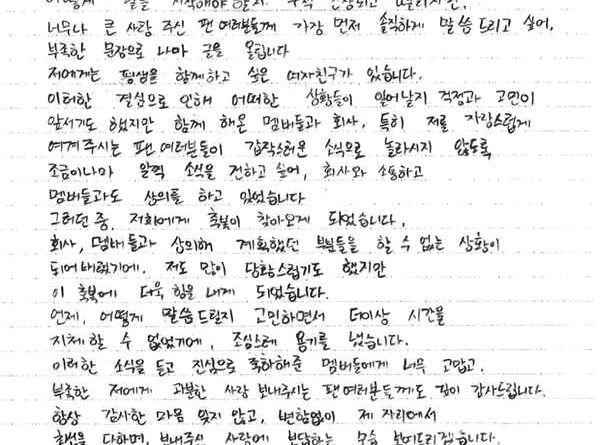 어떻게 말을 시작해야 할지
너무나 큰 사랑 주신 팬 여러분들께 가장 먼저 솔직하게 말씀 드리고 싶어,
부족한 문장으로 나마 글을 올립니다
저에게는 평생을 함께하고 싶은 여자친구가 있습니다.
이러한 결심으로 인해 어떠한 상황들이 일어날지 걱정과 고민이
앞서기도 했지만 함께 해온 멤버들과 회사, 특히 저를 자랑스럽게
여겨주시는 팬 여러분들이 갑작스러운 소식으로 놀라시지 않도록
조금이나마 일찍 소식을 전하고 싶어, 회사와 소통하고
멤버들과도 상의를 하고 있었습니다
그러던 중, 저희에게 축복이 찾아오게 되었습니다.
회사, 멤버들과 상의해 계획했던 부분들을 할 수 없는 상황이
되어버렸기에, 저도 많이 당황스럽기도 했지만
이 축복에 더욱 힘을 내게 되었습니다.
언제, 어떻게 말씀드릴지 고민하면서 더이상 시간을
지체할 수 없었기에, 조심스레 용기를 냈습니다.
이러한 소식을 듣고 진심으로 축하해준 멤버들에게 너무 고맙고,
부족한 저에게 과분한 사랑 보내주시는 팬여러분들께도 깊이 감사드립니다.
항상 감사한 마음 잊지 않고, 변함없이 제 자리에서
최선을 다하며, 보내주신 사랑에 보답하는 모습 보여드리겠습니다.